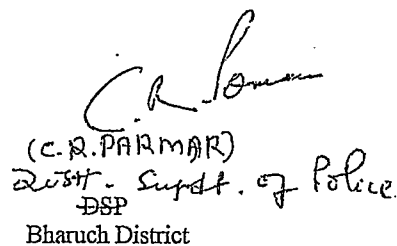 C. R. Parmar
(C.R.PARMAR)
Distt. Supdt. of Police
DSP
Bharuch District